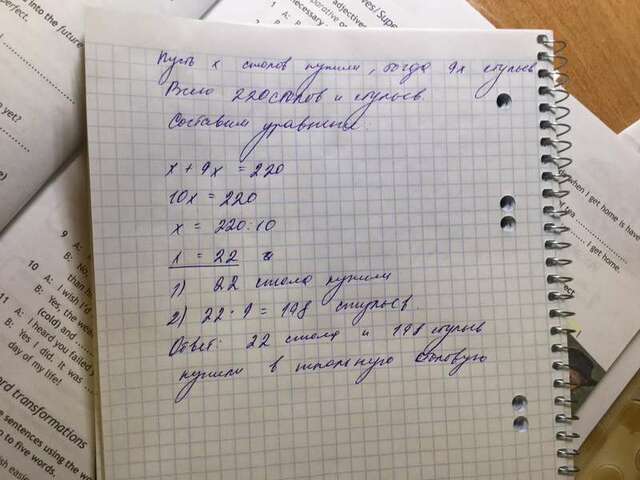 Пусть x столов купили, тогда 9x стульев
Всего 220 столов и стульев.
Составим уравнение:
x + 9x = 220
10x = 220
x = 220:10
x = 22
1) 22 стола купили
2) 22 · 9 = 198 стульев.
Ответ: 22 стола и 198 стульев
купили в школьную столовую
into the future
perfect.
1 A:
B:
necessary
adjectives
ves/Supe
yet?
9 A:
B: No,
than
10 A: I wish I'd
B: Yes, the wea
(cold) and
11 A: I heard you failed y
B: Yes I did. It was
day of my life!
ord transformations
e sentences using the wo
o to five words.
when I get home is have
tea
I get home.